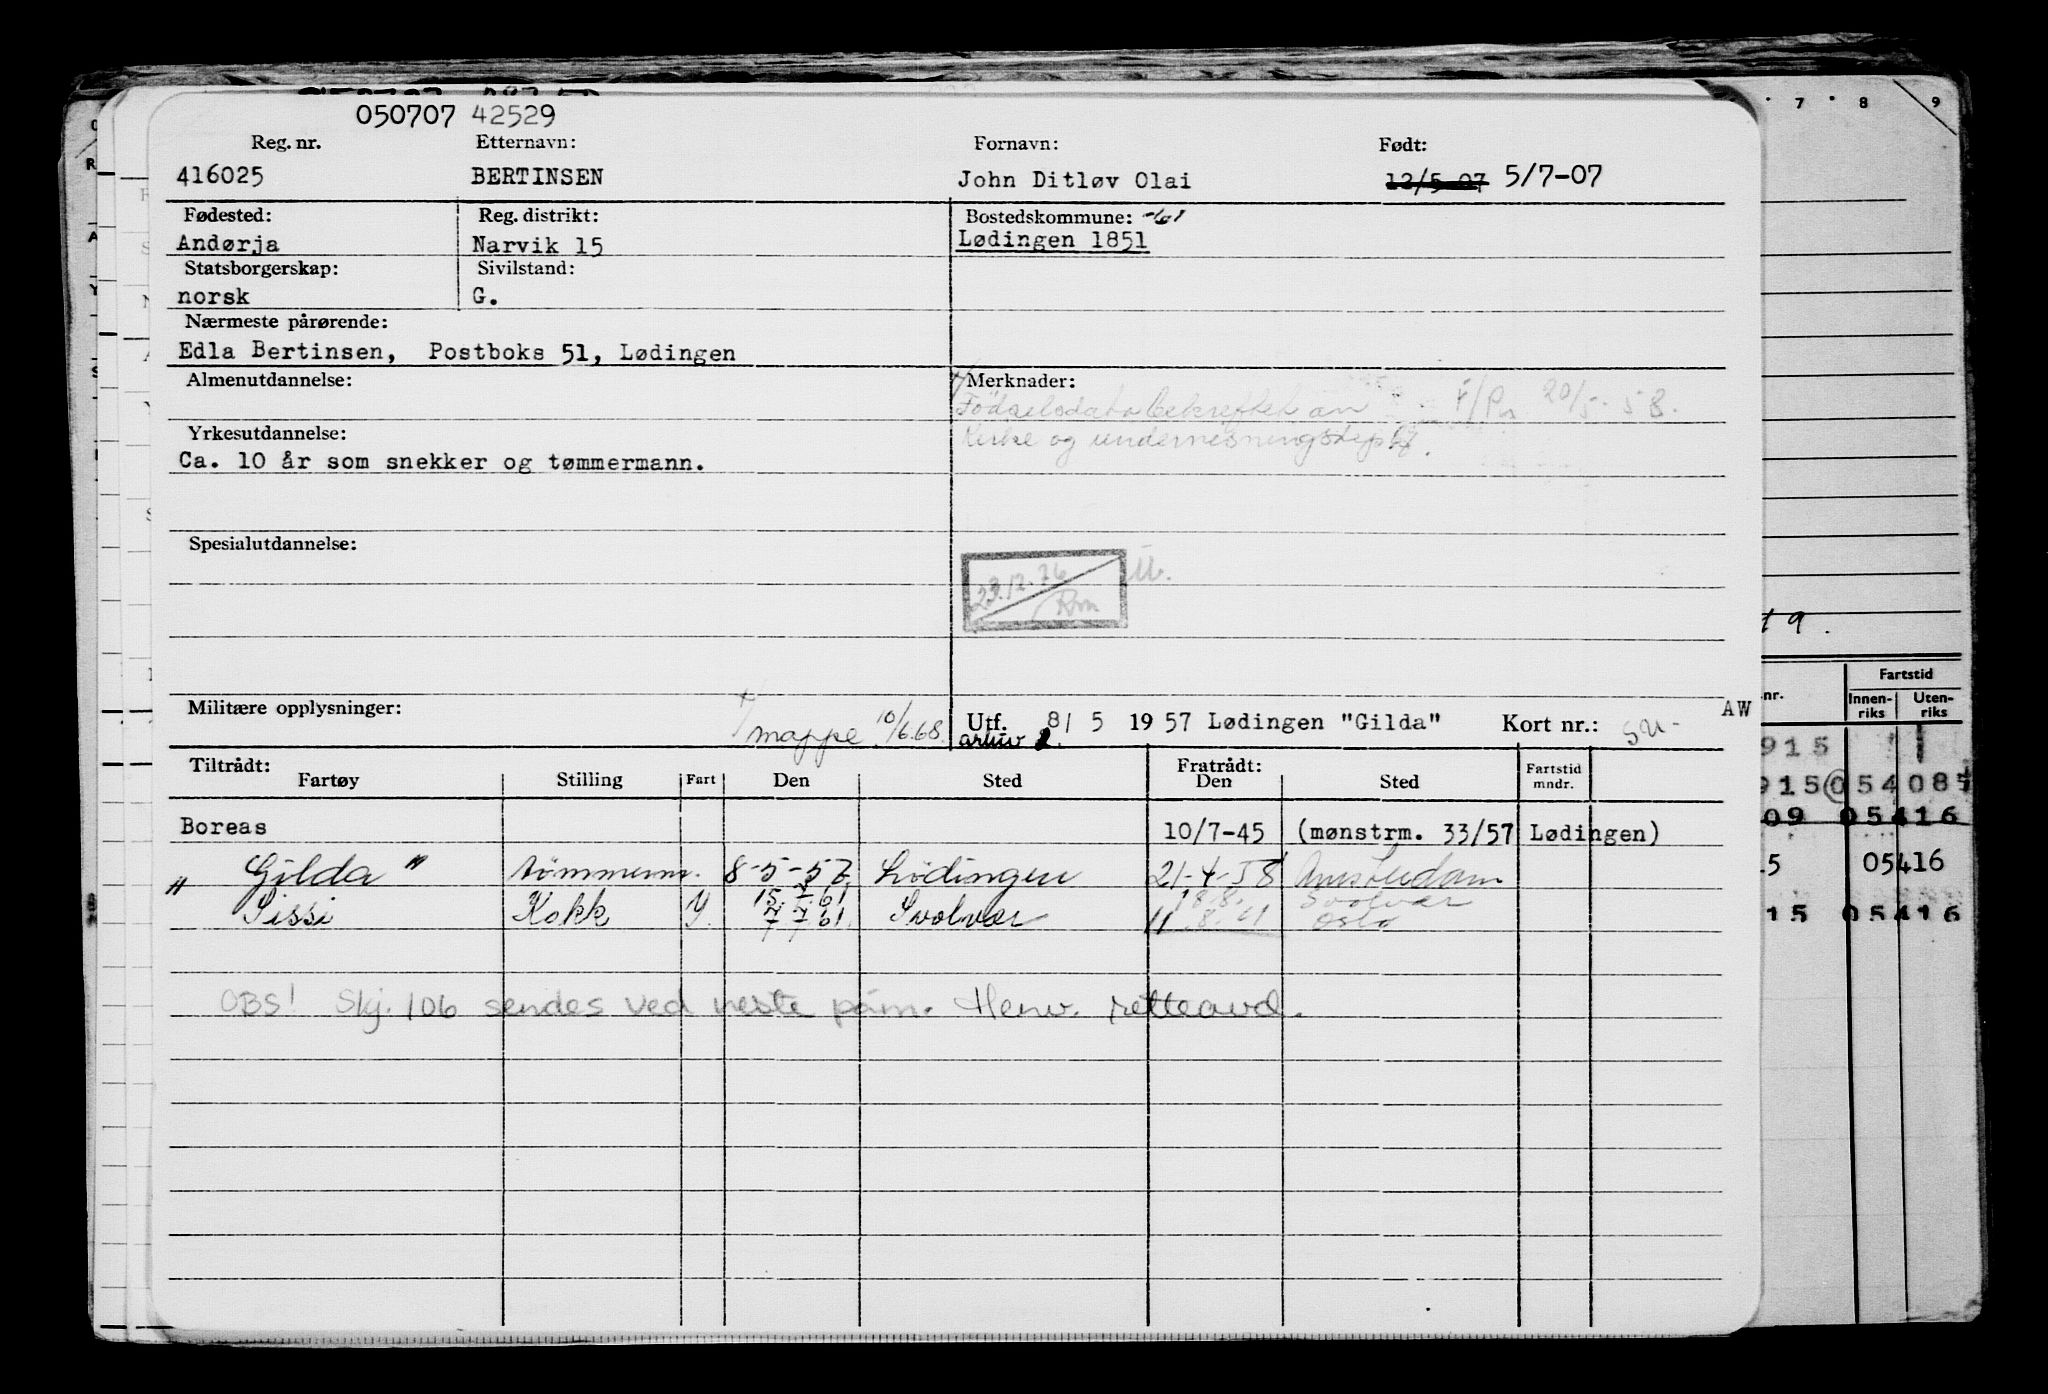 050707 42529
Reg. nr. Etternavn: Fornavn: Født:
416025 BERTINSEN John Ditløv Olai 12/5-07 5/7-07
Fødested: Reg. distrikt: Bostedskommune:
Andørja Narvik 15 Lødingen 1851
Statsborgerskap: Sivilstand:
norsk G.
Nærmeste pårørende:
Edla Bertinsen, Postboks 51, Lødingen
Almenutdannelse: Merknader:
Födselsdato bekreftet av 20/5-58.
Yrkesutdannelse: Kirke og undervisningsdept.
Ca. 10 år som snekker og tømmermann.
Spesialutdannelse:
23.12.76
Militære opplysninger: mappe 10/6.68. Utf. 8/ 5 1957 Lødingen "Gilda" Kort nr.: AW
arkiv 2.
Tiltrådt: Fratrådt: Fartstid
Fartøy Stilling Fart Den Sted Den Sted mndr.
Boreas 10/7-45 (mønstrm. 33/57 Lødingen)
" Gilda " tömmerm. 8-5-57 Lödingen 21-4-58 Amsterdam
15.7.61 18.8. Svolvær
Sissi Kokk Y. 7.7.61. Svolvær 11.8.61 Oslo
OBS! Skj. 106 sendes ved neste påm. Henv. retteavd.
7 8 9
t 9.
Fartstid
nr. Innen- Uten-
riks riks
915
915 054 085
09 05416
15 05416
15 05416